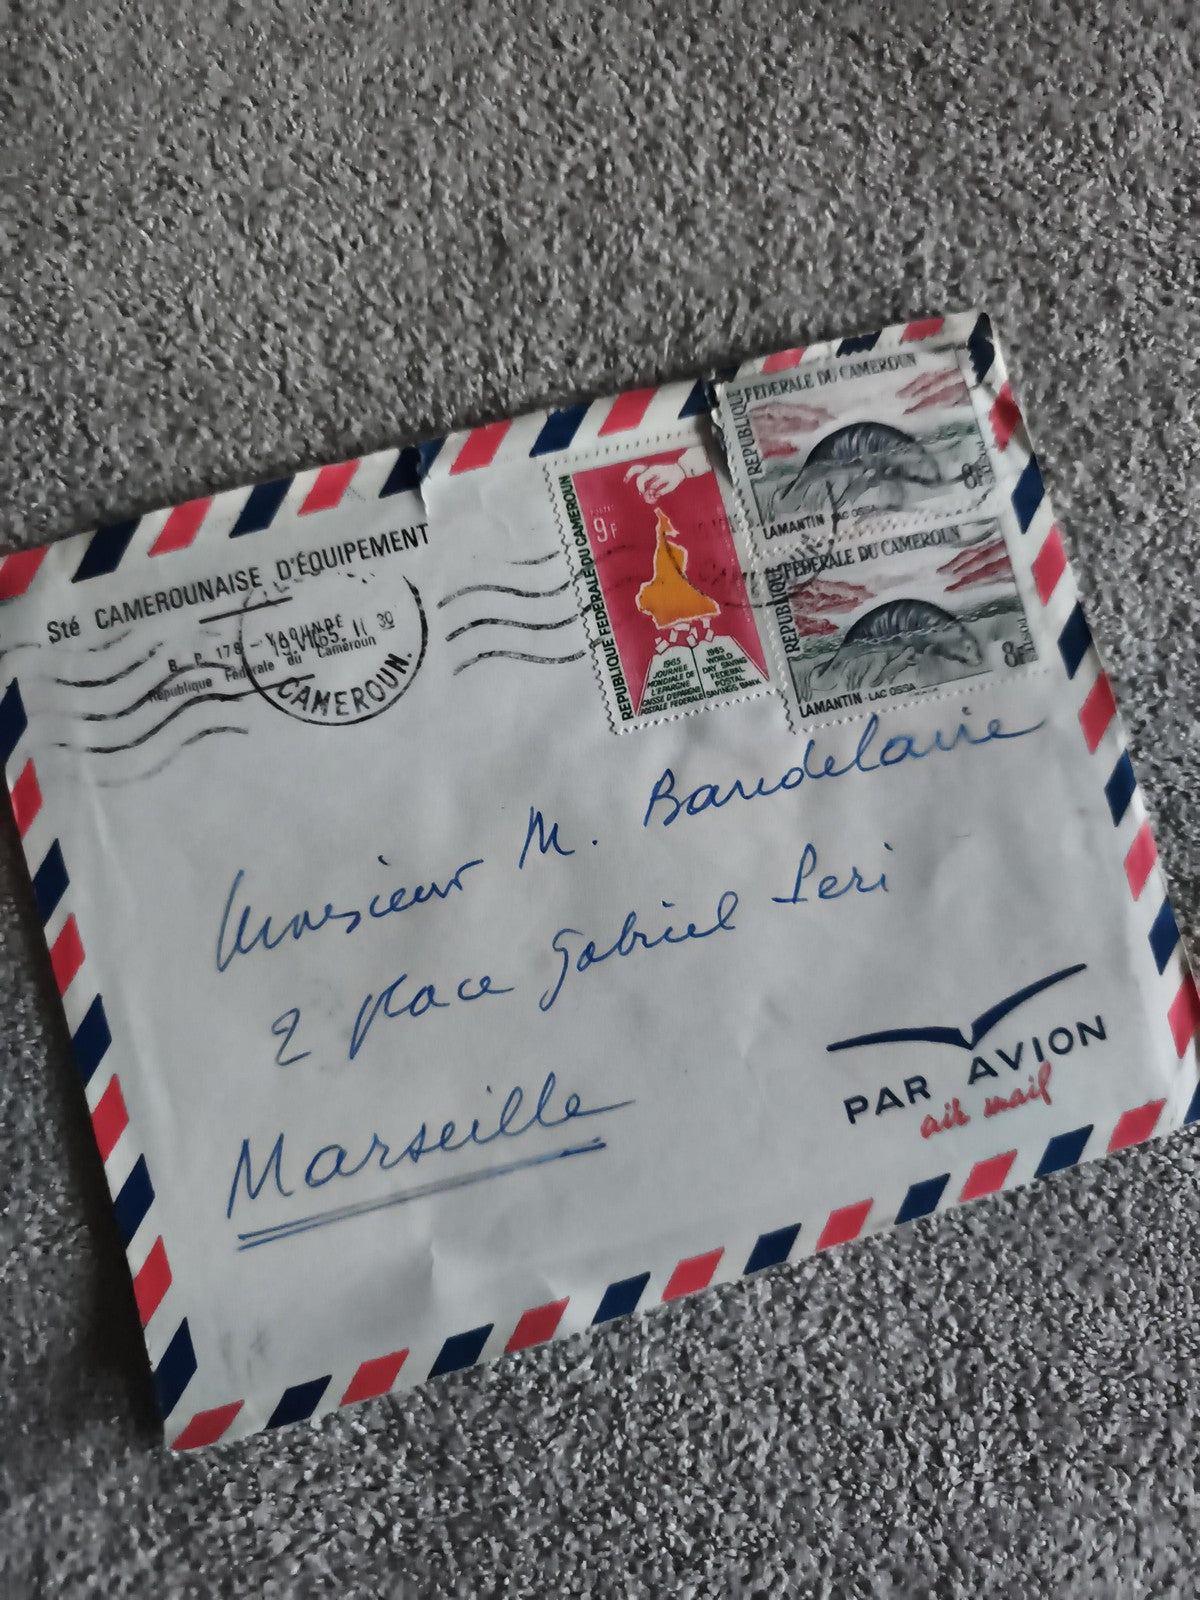 Sté CAMEROUNAISE D'ÉQUIPEMENT
B. P. 178 - YAOUNDE
République Fédérale du Cameroun
19.VI 65. 11 30
CAMEROUN.
REPUBLIQUE FEDERALE DU CAMEROUN
POSTES
9F
1965
JOURNÉE
MONDIALE DE
L'EPARGNE
CAISSE D'EPARGNE
POSTALE FEDERALE
1965
WORLD
DAY SAVING
FEDERAL
POSTAL
SAVINGS BANK
REPUBLIQUE FEDERALE DU CAMEROUN
8F
POSTES
LAMANTIN - LAC OSSA
REPUBLIQUE FEDERALE DU CAMEROUN
8F
POSTES
LAMANTIN - LAC OSSA
Monsieur M. Baudelaire
2 place Gabriel Peri
Marseille
PAR AVION
air mail